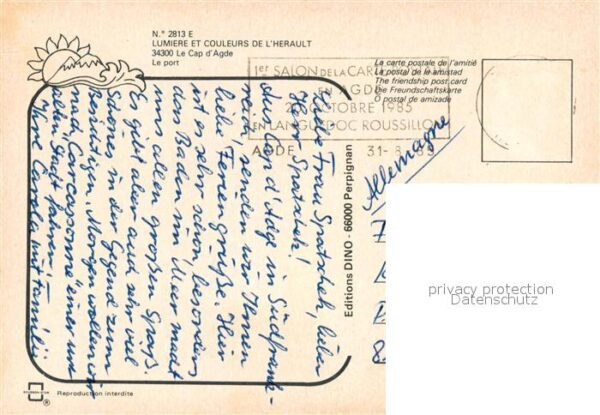 N.° 2813 E
LUMIERE ET COULEURS DE L'HERAULT
34300 Le Cap d'Agde
Le port
La carte postale de l'amitié
La postal de la amistad
The friendship post card
Die Freundschaftskarte
O postal de amizade
1er SALON DE LA CARTE POSTALE
EN AGDE
OCTOBRE 1985
EN LANGUEDOC ROUSSILLON
AGDE 31-8
Allemagne
Liebe Frau Spatschek, lieber
Herr Spatschek!
Aus Cap d'Agde in Südfrank-
reich senden wir Ihnen
liebe Feriengrüße. Hier
ist es sehr schön, besonders
das Baden im Meer macht
uns allen großen Spaß.
Es gibt aber auch sehr viel
Schönes in der Gegend zum
Besichtigen. Morgen wollen wir
nach "Carcassonne" einer
alten Stadt fahren!
Ihre Carola mit Familie
Editions DINO - 66000 Perpignan
privacy protection
Datenschutz
Reproduction interdite
®